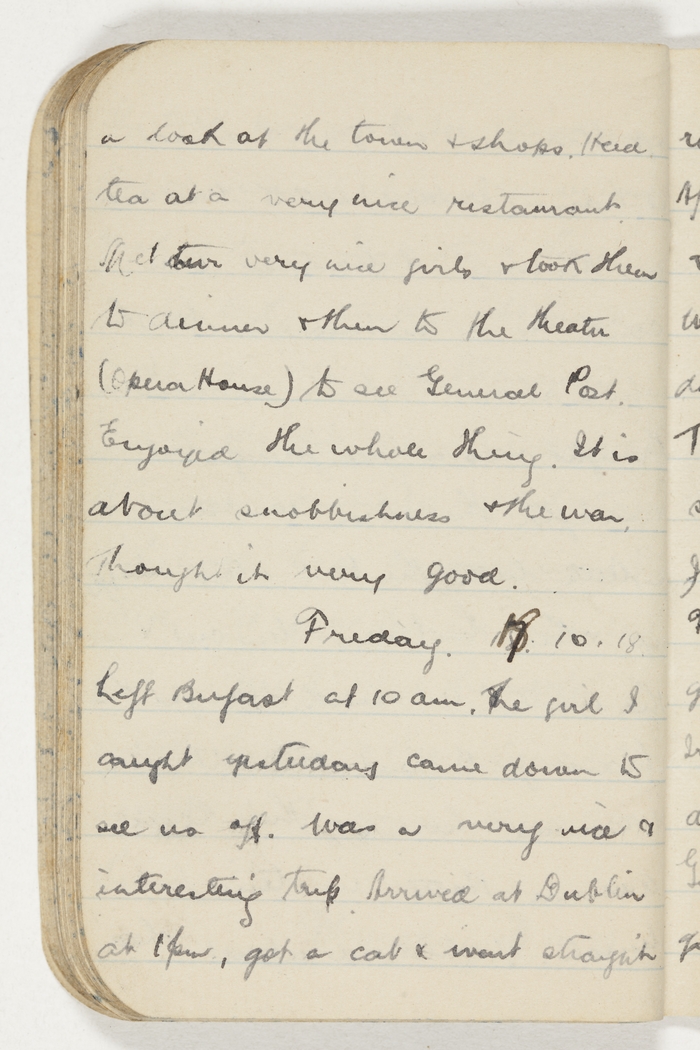 a look at the town & shops. Had
tea at a very nice restaurant.
Met two very nice girls & took them
to dinner & then to the theatre
(Opera House) to see General Post.
Enjoyed the whole thing. It is
about snobbishness & the war,
thought it very good.
Friday. 10.18
Left Belfast at 10 am. The girl I
caught yesterday came down to
see us off. Was a very nice &
interesting trip. Arrived at Dublin
at 1 pm, got a cab & went straight